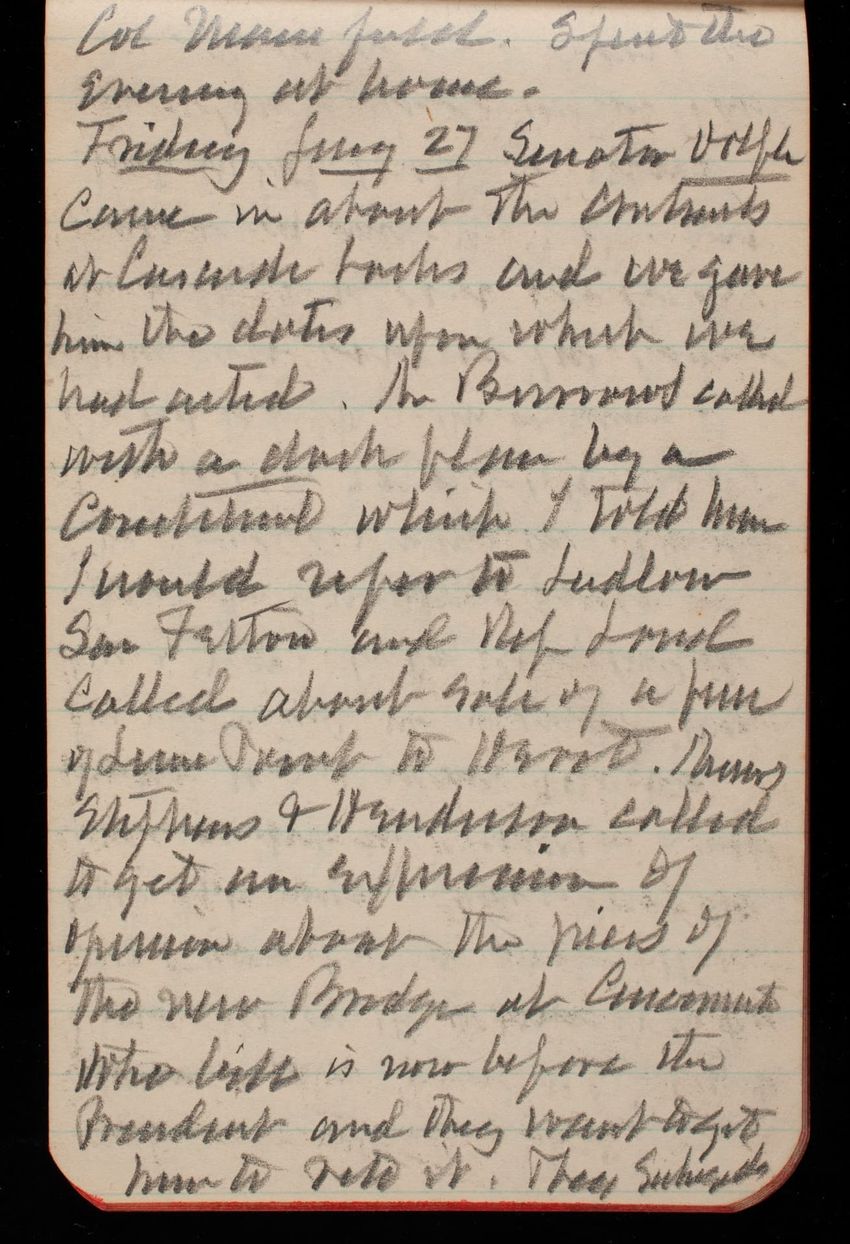 Col Mansfield. Spent the
Evening at home.
Friday Jany 27 Senator Dolph
Came in about the Contracts
at Cascade Locks and we gave
him the dates upon which we
had acted. Mr Burrows called
with a dock plan by a
which I told him
I would refer to Ludlow
Sen Felton and Rep Loud
Called about sale of a piece
of Lime Point to Harort. Messrs
Stephens & Henderson called
to get an expression of
opinion about the piers of
the new Bridge at Cincinnati
bill is now before the
President and they want to get
him to veto it. They